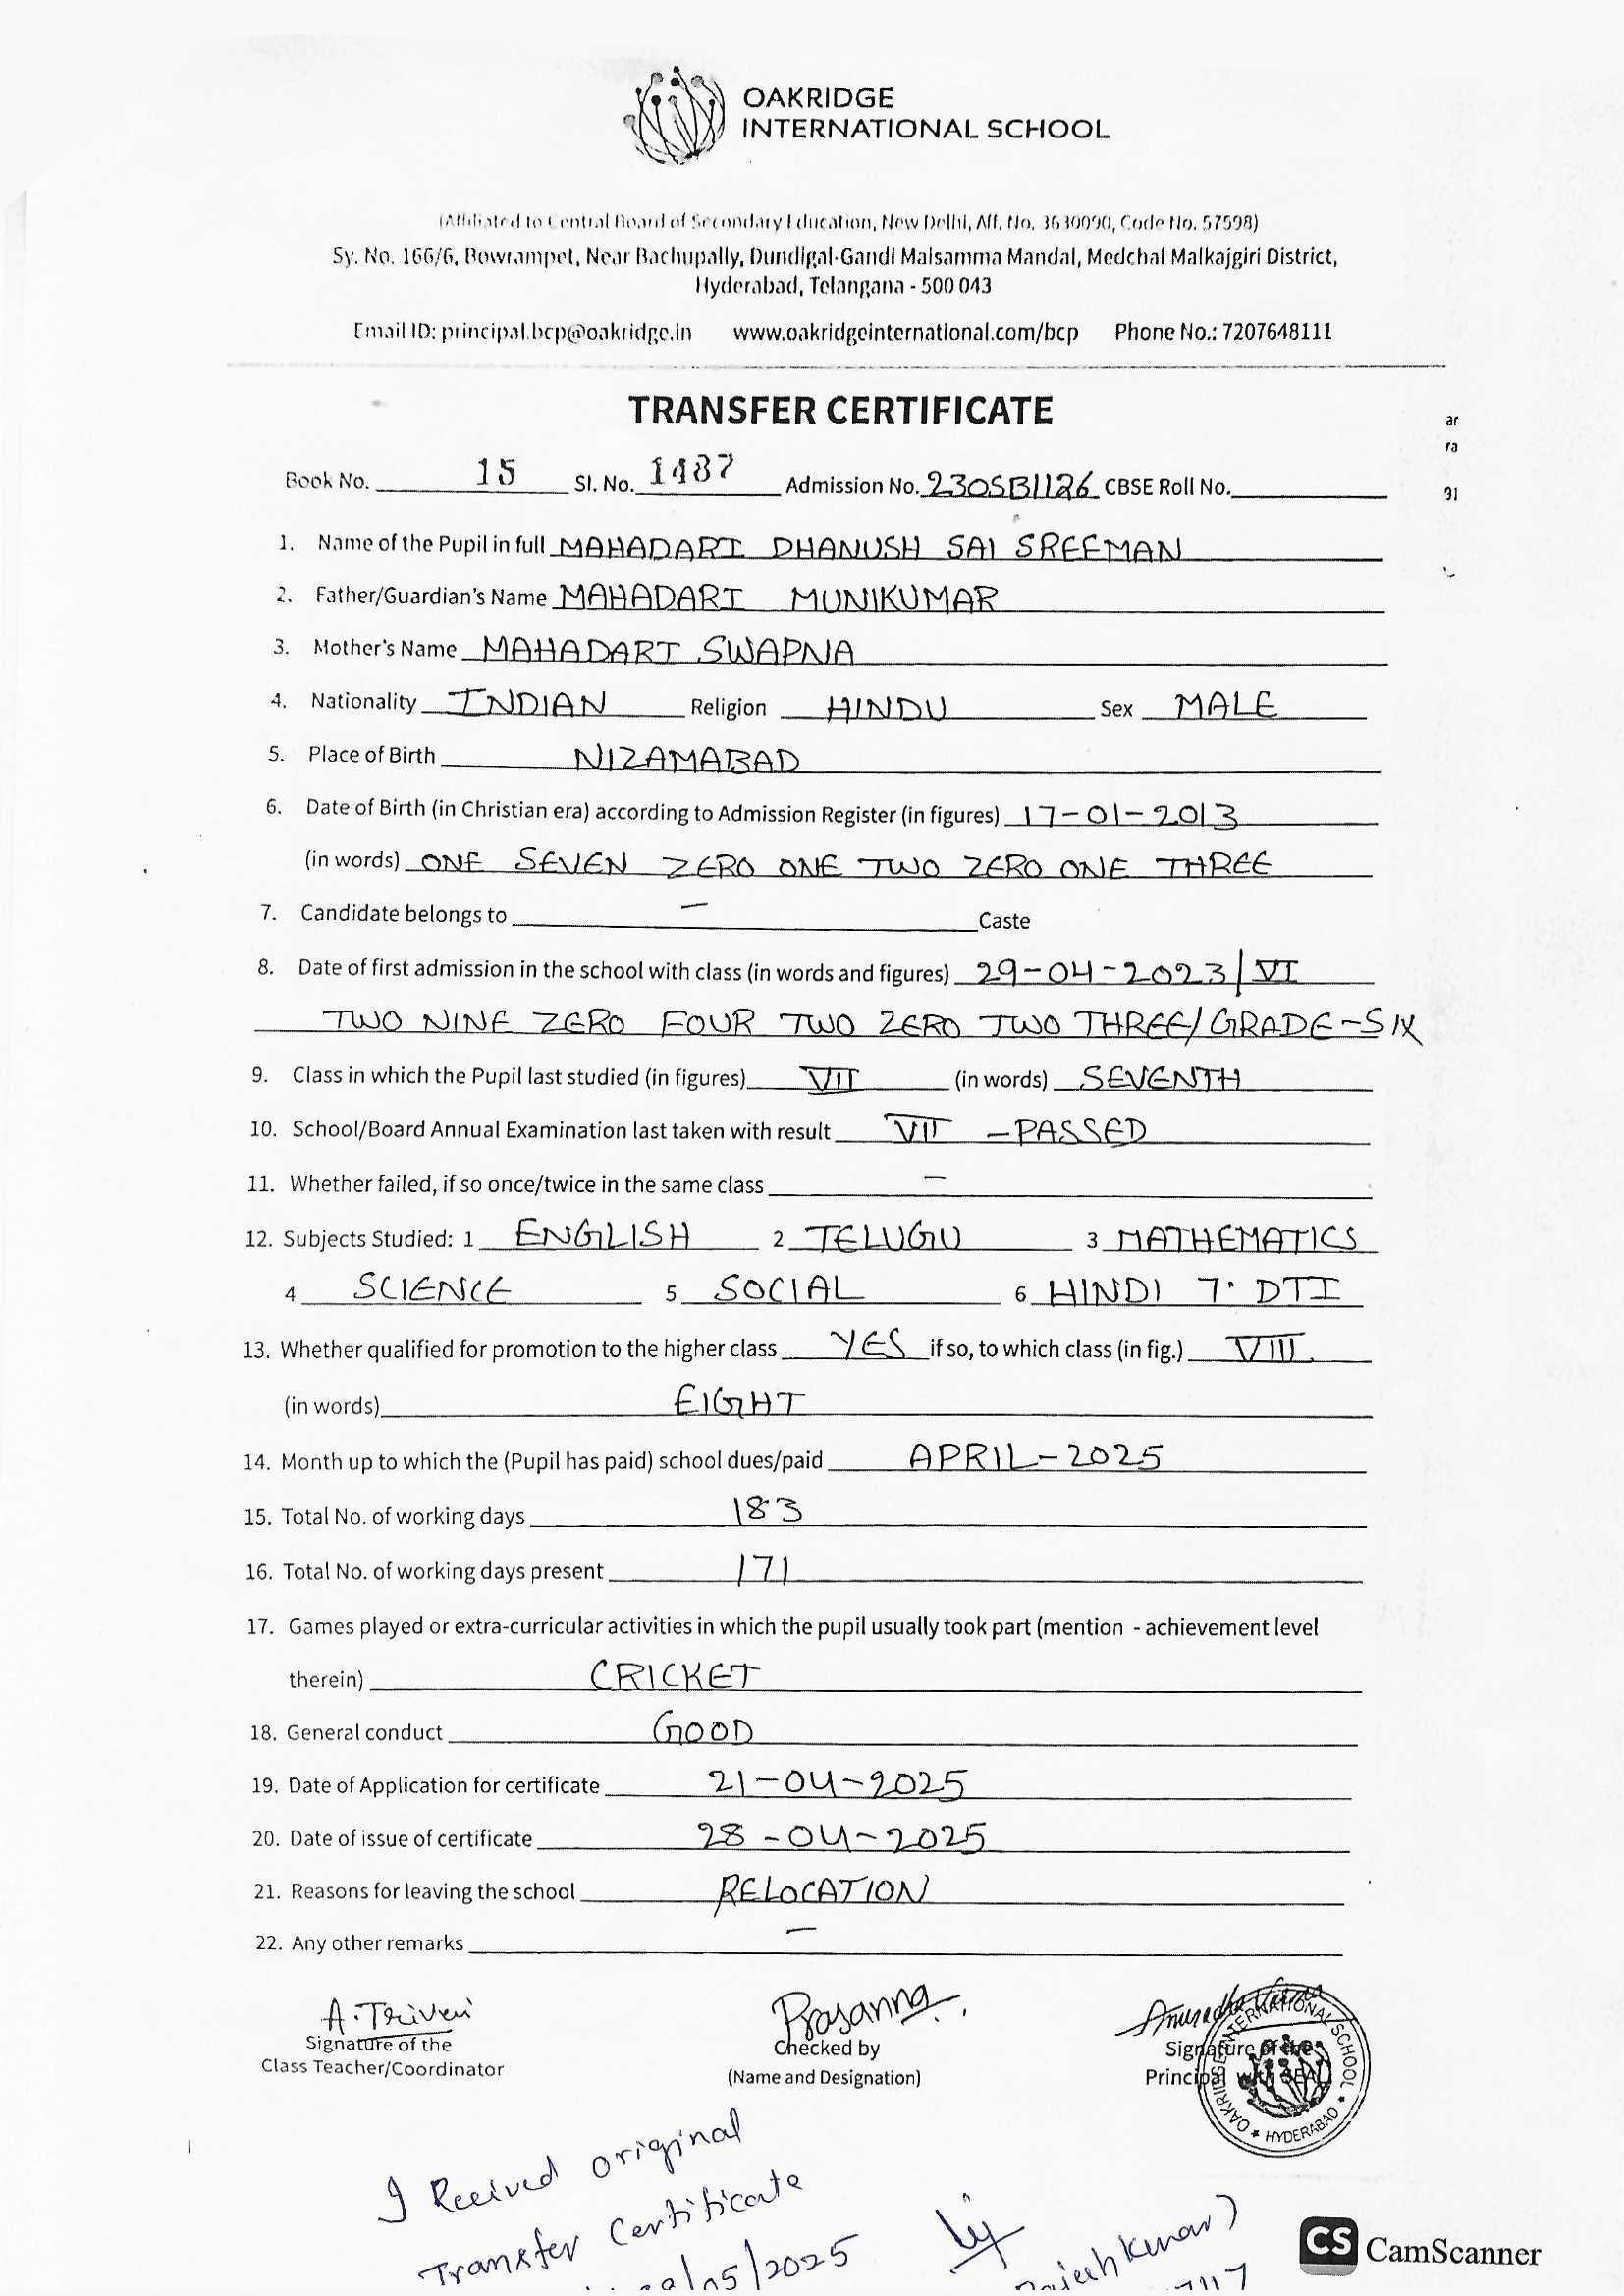 OAKRIDGE
INTERNATIONAL SCHOOL
(Affiliated to Central Board of Secondary Education, New Delhi, Aff. No. 3630090, Code No. 57598)
Sy. No. 166/6, Bowrampet, Near Bachupally, Dundigal-Gandi Maisamma Mandal, Medchal Malkajgiri District,
Hyderabad, Telangana - 500 043
Email ID: principal.bcp@oakridge.in www.oakridgeinternational.com/bcp Phone No.: 7207648111
TRANSFER CERTIFICATE
ar
ra
Book No. 15 Sl. No. 1487 Admission No. 230SB1126 CBSE Roll No.
91
1. Name of the Pupil in full MAHADARI DHANUSH SAI SREEMAN
2. Father/Guardian's Name MAHADARI MUNIKUMAR
3. Mother's Name MAHADARI SWAPNA
4. Nationality INDIAN Religion HINDU Sex MALE
5. Place of Birth NIZAMABAD
6. Date of Birth (in Christian era) according to Admission Register (in figures) 17-01-2013
(in words) ONE SEVEN ZERO ONE TWO ZERO ONE THREE
7. Candidate belongs to — Caste
8. Date of first admission in the school with class (in words and figures) 29-04-2023/VI
TWO NINE ZERO FOUR TWO ZERO TWO THREE/GRADE-SIX
9. Class in which the Pupil last studied (in figures) VII (in words) SEVENTH
10. School/Board Annual Examination last taken with result VII -PASSED
11. Whether failed, if so once/twice in the same class —
12. Subjects Studied: 1 ENGLISH 2 TELUGU 3 MATHEMATICS
4 SCIENCE 5 SOCIAL 6 HINDI 7. DTI
13. Whether qualified for promotion to the higher class YES if so, to which class (in fig.) VIII
(in words) EIGHT
14. Month up to which the (Pupil has paid) school dues/paid APRIL-2025
15. Total No. of working days 183
16. Total No. of working days present 171
17. Games played or extra-curricular activities in which the pupil usually took part (mention - achievement level
therein) CRICKET
18. General conduct GOOD
19. Date of Application for certificate 21-04-2025
20. Date of issue of certificate 28-04-2025
21. Reasons for leaving the school RELOCATION
22. Any other remarks —
A. Triveni Prasanna
Signature of the Checked by Signature of the
Class Teacher/Coordinator (Name and Designation) Principal with SEAL
OAKRIDGE INTERNATIONAL SCHOOL * HYDERABAD *
I Received original
Transfer Certificate
/05/2025
CS CamScanner